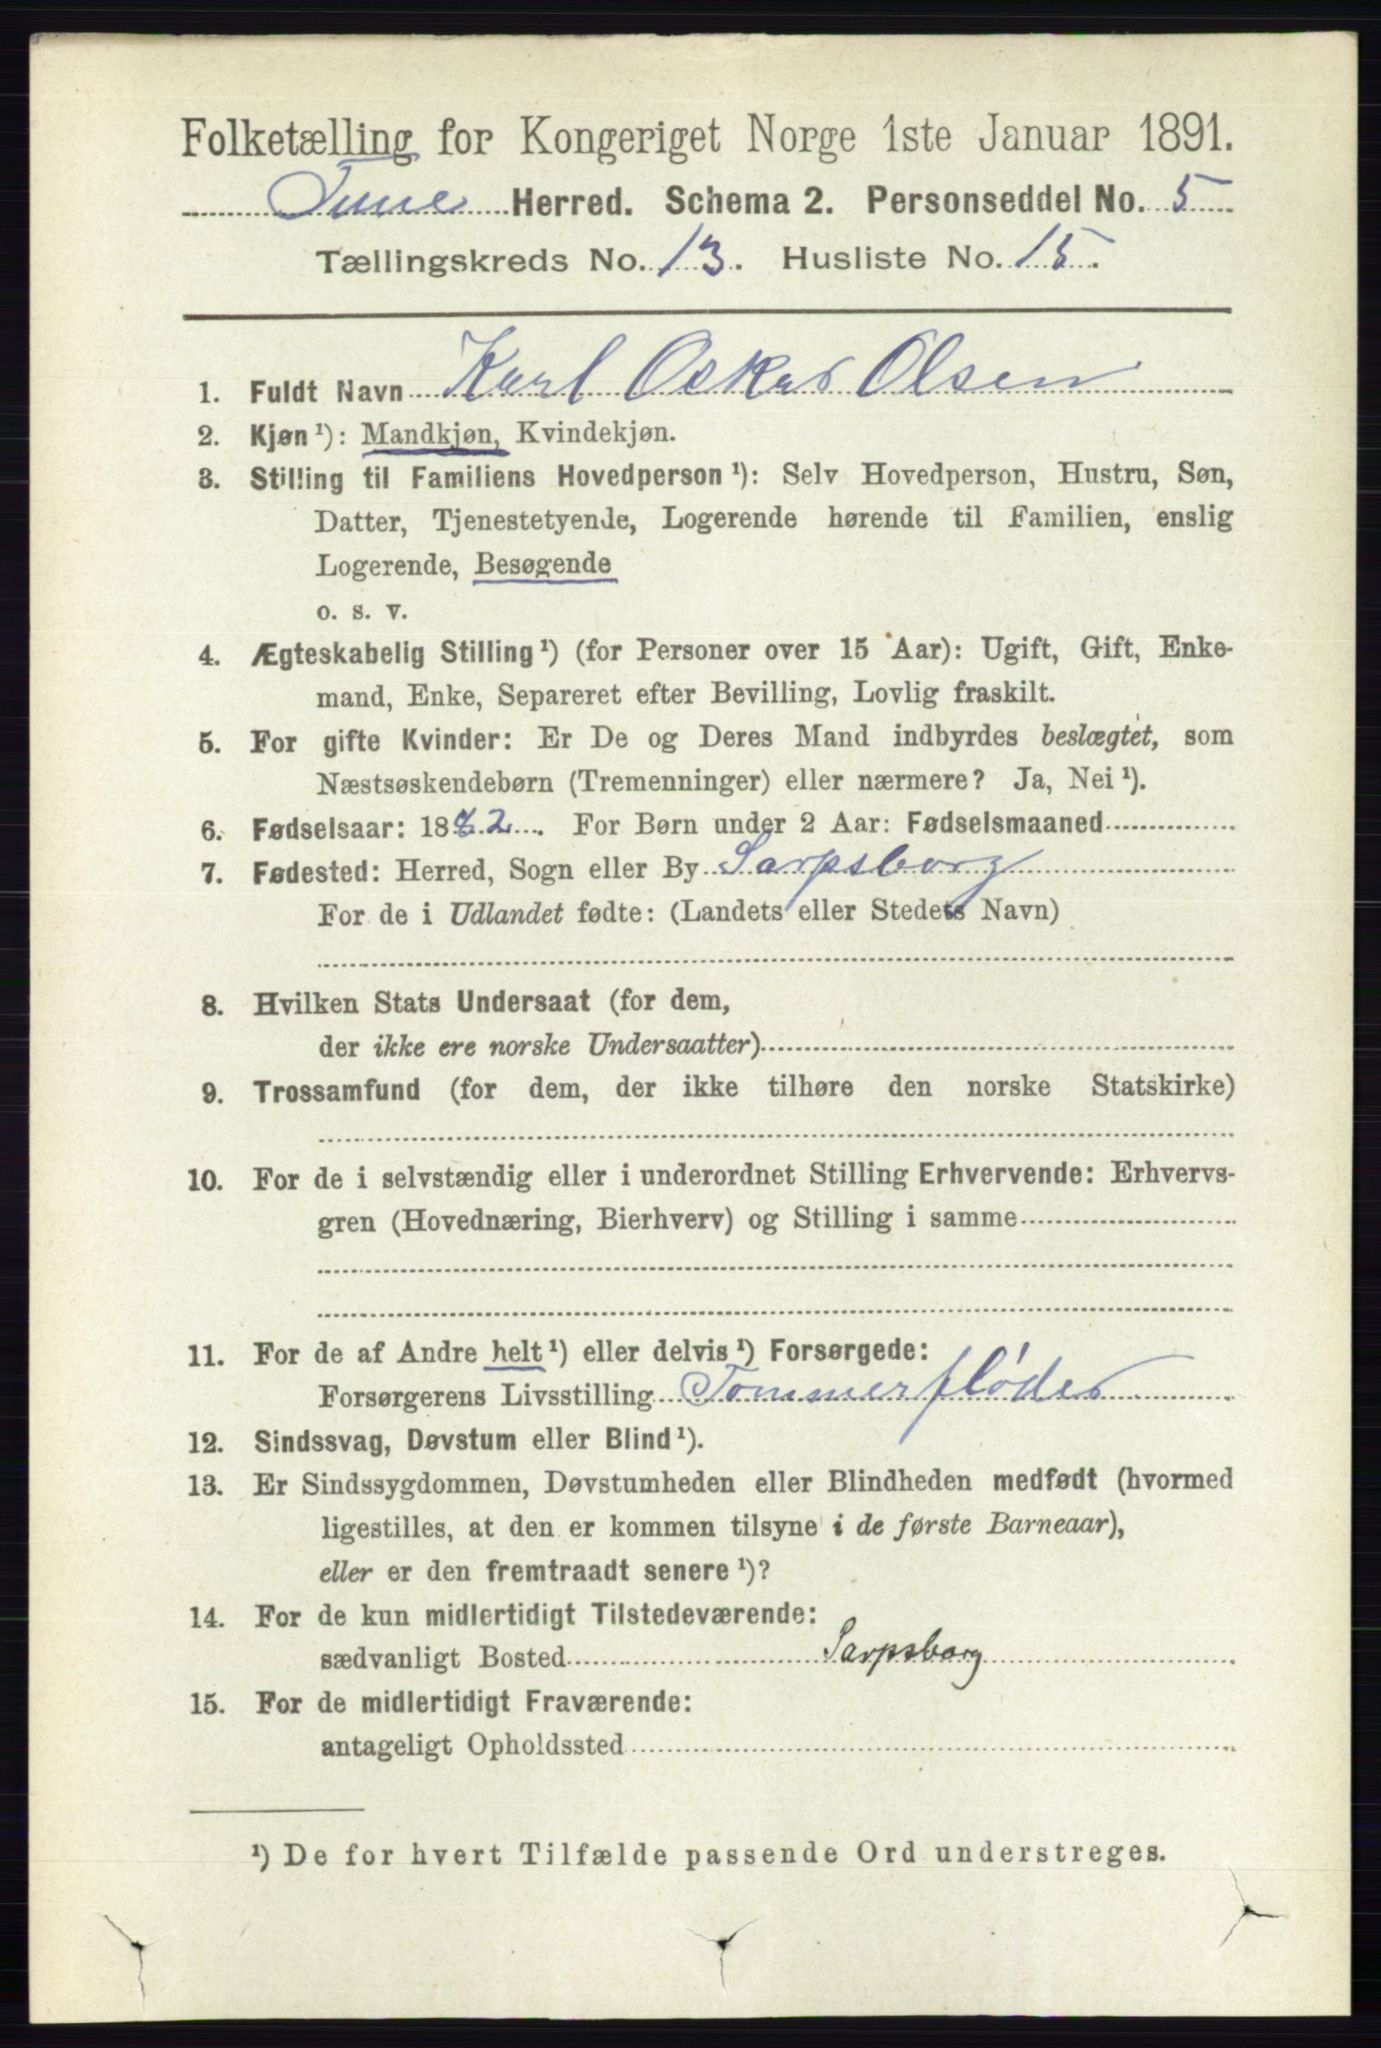 Folketælling for Kongeriget Norge 1ste Januar 1891.
Tune Herred. Schema 2. Personseddel No. 5
Tællingskreds No. 13. Husliste No. 15.
1. Fuldt Navn Karl Oskar Olsen
2. Kjøn ¹): Mandkjøn, Kvindekjøn.
3. Stilling til Familiens Hovedperson ¹): Selv Hovedperson, Hustru, Søn,
Datter, Tjenestetyende, Logerende hørende til Familien, enslig
Logerende, Besøgende
o. s. v.
4. Ægteskabelig Stilling ¹) (for Personer over 15 Aar): Ugift, Gift, Enke-
mand, Enke, Separeret efter Bevilling, Lovlig fraskilt.
5. For gifte Kvinder: Er De og Deres Mand indbyrdes beslægtet, som
Næstsøskendebørn (Tremenninger) eller nærmere? Ja, Nei ¹).
6. Fødselsaar: 1882. For Børn under 2 Aar: Fødselsmaaned
7. Fødested: Herred, Sogn eller By Sarpsborg
For de i Udlandet fødte: (Landets eller Stedets Navn)
8. Hvilken Stats Undersaat (for dem,
der ikke ere norske Undersaatter)
9. Trossamfund (for dem, der ikke tilhøre den norske Statskirke)
10. For de i selvstændig eller i underordnet Stilling Erhvervende: Erhvervs-
gren (Hovednæring, Bierhverv) og Stilling i samme
11. For de af Andre helt ¹) eller delvis ¹) Forsørgede:
Forsørgerens Livsstilling Tømmerfløder
12. Sindssvag, Døvstum eller Blind ¹).
13. Er Sindssygdommen, Døvstumheden eller Blindheden medfødt (hvormed
ligestilles, at den er kommen tilsyne i de første Barneaar),
eller er den fremtraadt senere ¹)?
14. For de kun midlertidigt Tilstedeværende:
sædvanligt Bosted Sarpsborg
15. For de midlertidigt Fraværende:
antageligt Opholdssted
¹) De for hvert Tilfælde passende Ord understreges.